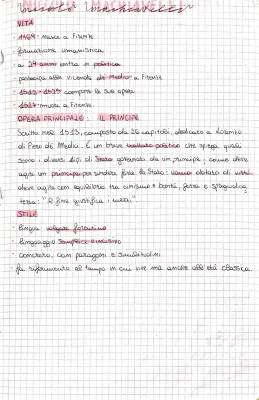 Niccolò Machiavelli
VITA
· 1469 nasce a Firenze
· formazione umanistica
· a 29 anni entra in politica
partecipa alle vicende de Medici a Firenze
· 1513 - compone la sua opera
· 1527 muore a Firenze
OPERA PRINCIPALE: IL PRINCIPE
Scritto nel 1513, composto da 26 capitoli, dedicato a Lorenzo
di Piero de Medici. È un breve trattato politico che spiega quali
sono i diversi tipi di Stato governati da un principe, come deve
agire un principe per rendere forte lo Stato: uomo dotato di virtù
deve agire con equilibrio tra cinismo e bontà, forza e spregiudica
tezza: "il fine giustifica i mezzi"
STILE
· lingua volgare fiorentino
· linguaggio semplice e incisivo
· concreto, con paragoni e similitudini
· fa riferimento al tempo in cui vive ma anche all'età classica.